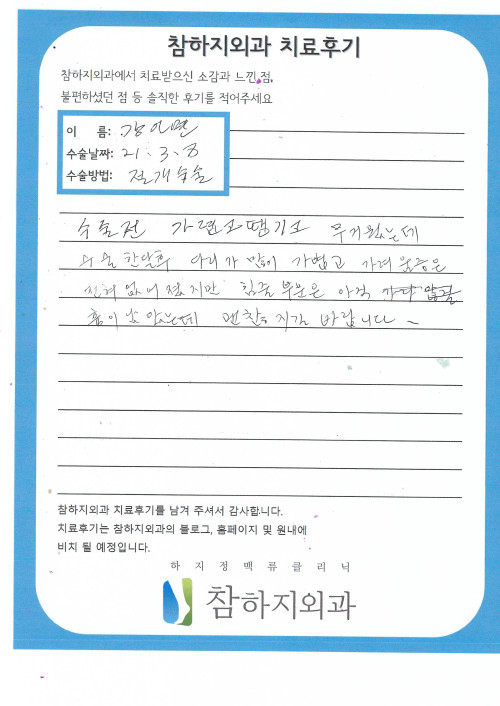 참하지외과 치료후기
참하지외과에서 치료받으신 소감과 느낀 점,
불편하셨던 점 등 솔직한 후기를 적어주세요
이 름:
수술날짜: 21. 3. 8
수술방법: 절개수술
수술전 가렵고 땡기고 무거웠는데
수술 한달후 다리가 많이 가볍고 가려움증은
전혀 없어졌지만 힘줄 부분은 아직
흉이 남았는데 괜찮아지길 바랍니다 ~
참하지외과 치료후기를 남겨 주셔서 감사합니다.
치료후기는 참하지외과의 블로그, 홈페이지 및 원내에
비치 될 예정입니다.
하지정맥류클리닉
참하지외과